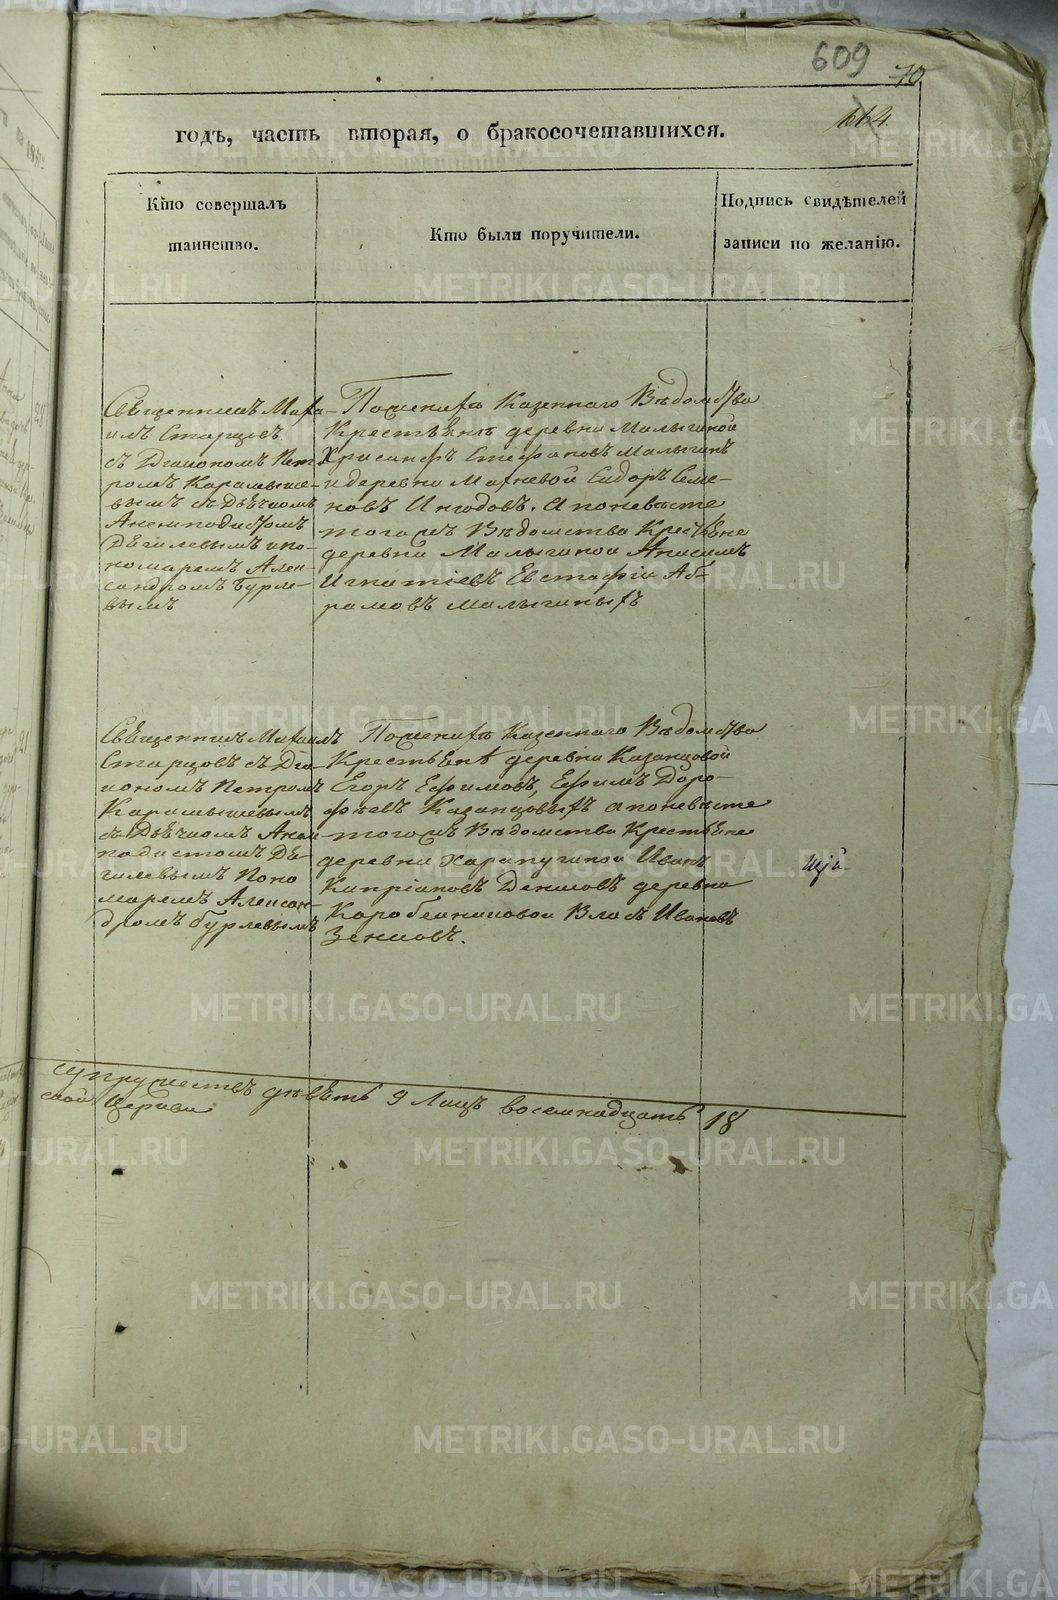 609
70
114
годъ, часть вторая, о бракосочетавшихся.
Кто совершалъ
таинство.
Кто были поручители.
Подпись свидѣтелей
записи по желанію.
Священникъ Миха-
илъ Старцовъ
съ Діакономъ Пет
ромъ Карамыше-
вымъ съ Дьячкомъ
Анемподистомъ
Дягилевымъ и по-
номаремъ Алек-
сандромъ Бурле-
вымъ
По женихѣ Казеннаго Вѣдомства
Крестьяне деревни Малыгиной
Хрисанфъ Стефановъ Малыгинъ
и деревни Махневой Сидоръ Семе-
новъ Ингодовъ. А по невѣсте
того жъ Вѣдомства Крестьяне
деревни Малыгиной Анисимъ
Игнатіевъ Евстафій Аб-
рамовъ Малыгиныхъ
Священникъ Михаилъ
Старцовъ съ Діа-
кономъ Петромъ
Карамышевымъ
съ Дьячкомъ Анем-
подистомъ Дя-
гилевымъ Поно
маремъ Алексан-
дромъ Бурлевымъ
По женихѣ Казеннаго Вѣдомства
Крестьянѣ деревни Казанцовой
Егоръ Ефимовъ, Ефимъ Доро-
фѣевъ Казанцовыхъ а по невѣсте
того жъ Вѣдомства Крестьяне
деревни Харапугиной Иванъ
Кипріановъ Денисовъ деревни
Коробейниковой Власъ Ивановъ
Зенковъ.
Супружествъ дѣвять 9 Лицъ восемнадцать 18
ской Церкви
METRIKI.GASO-URAL.RU